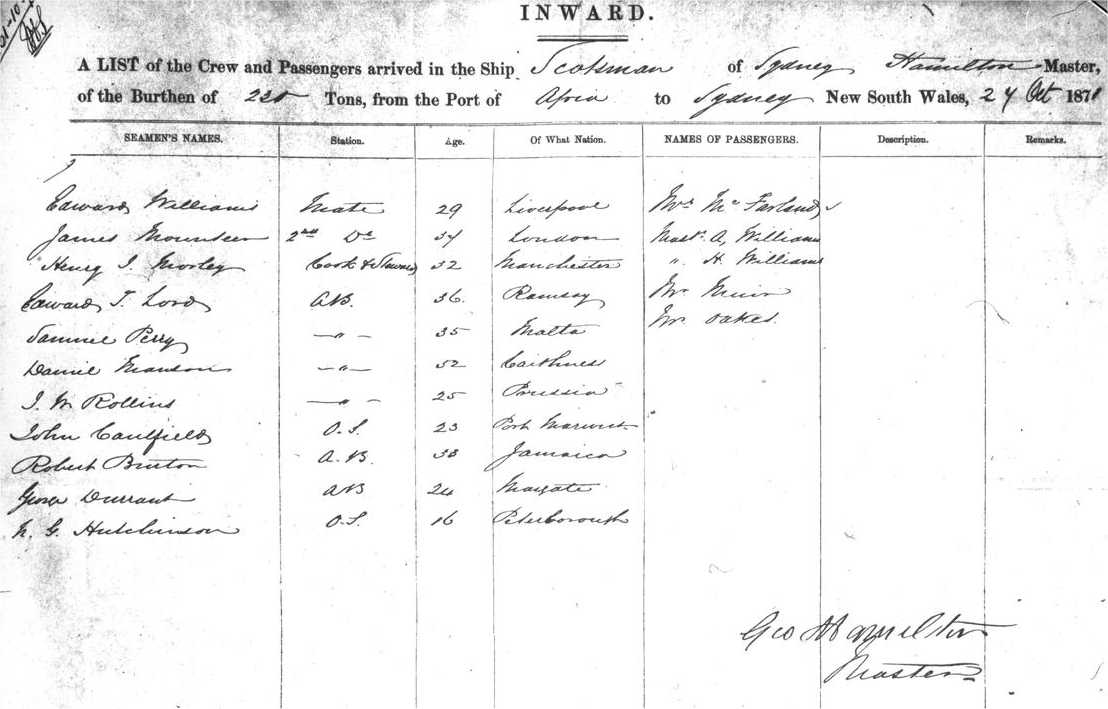 INWARD.
A LIST of the Crew and Passengers arrived in the Ship Scotsman of Sydney Hamilton Master,
of the Burthen of 220 Tons, from the Port of Apia to Sydney New South Wales, 24 Oct 1871
SEAMEN'S NAMES. Station. Age. Of What Nation. NAMES OF PASSENGERS. Description. Remarks.
Edward Williams Mate 29 Liverpool Mrs McFarland
James 2nd Do 34 London Mast. A, Williams
Henry J. Morley Cook & Steward 32 Manchester " H. Williams
Edward T. Lord AB. 36 Ramsay Mr Muir
Samuel Perry —"— 35 Malta Mr Oakes.
Daniel Manson —"— 52 Caithness
J. W Rollins —"— 25 Prussia
John Caulfield O.S. 23 Port
Robert Burton A.B. 38 Jamaica
George Durrant AB 24 Margate
G. Hutchinson O.S. 16 Peterborough
Geo Hamilton
Master